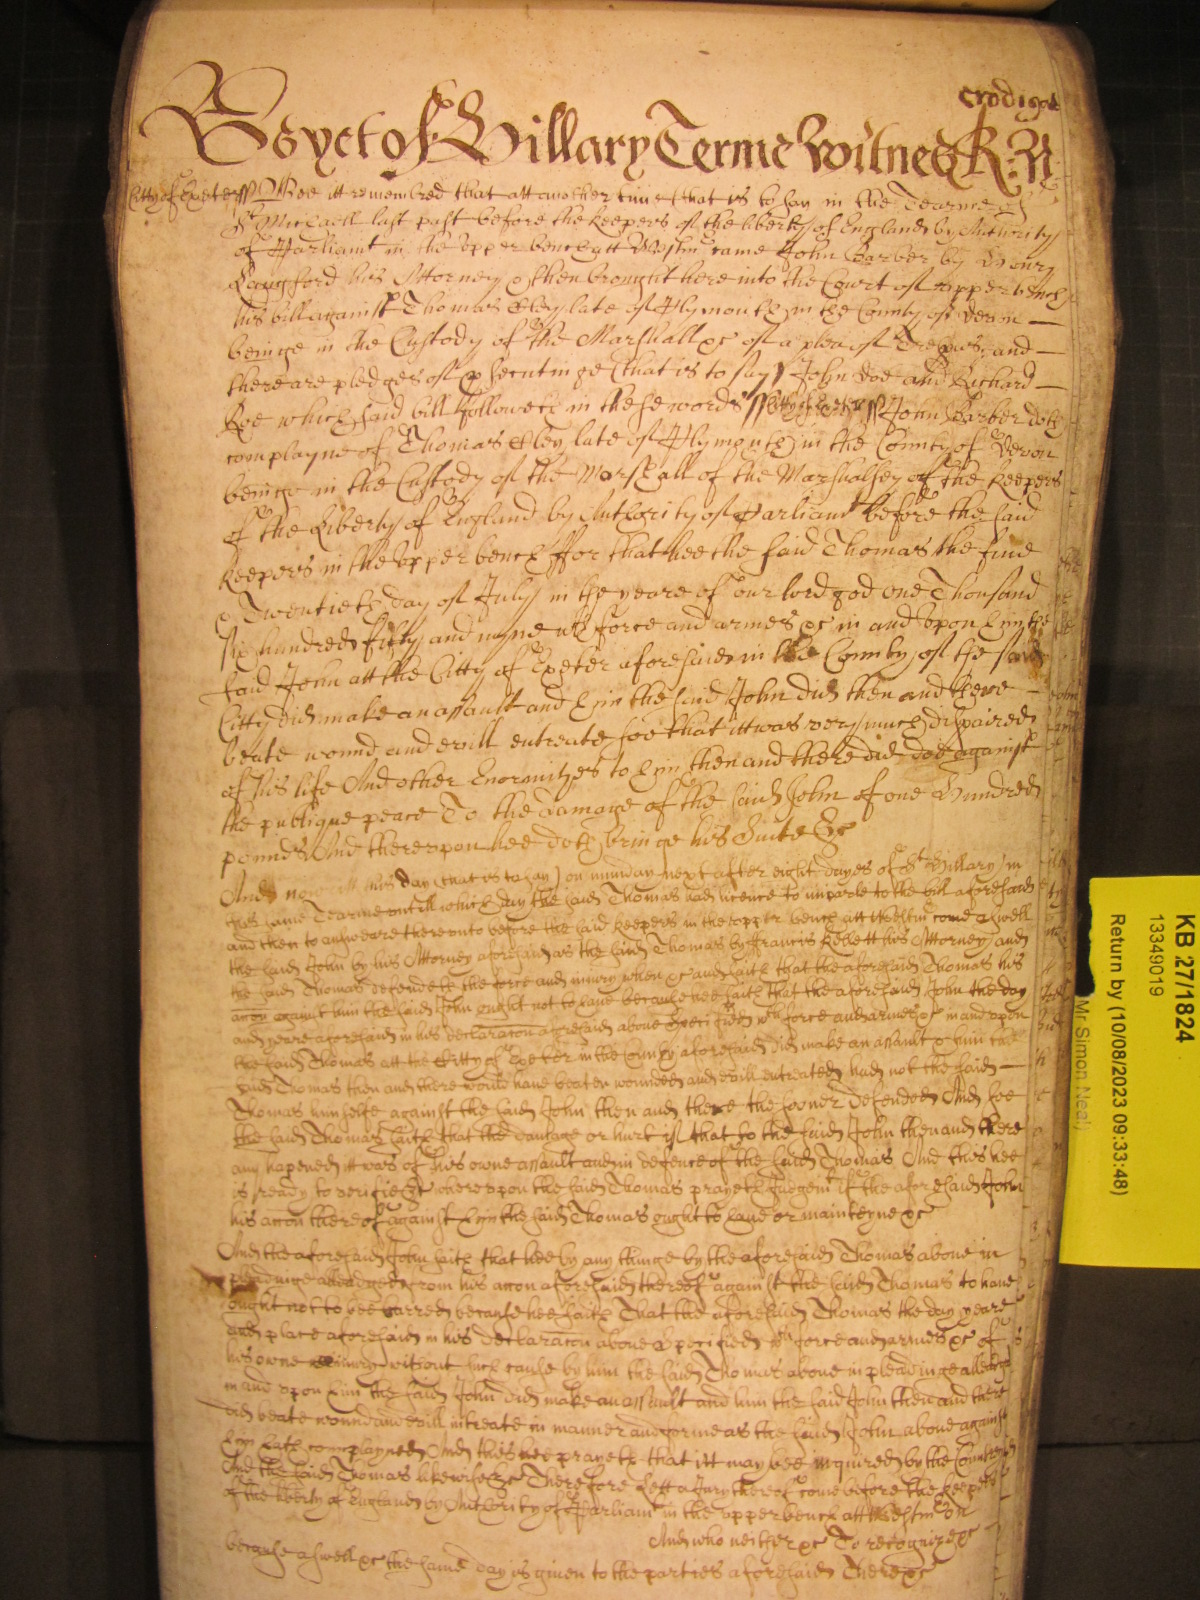 Crod 1 9
As yet of Hillary Terme Witnes R: N:
Citty of Exeter ss Bee itt remembred that att another time that is to say in the Tearme of
St Michaell last past before the keepers of the liberty of England by Authority
of Parliamt in the upper bench att Westmr came John Barber by Henry
Langford his Attorney & then brought here into the Court of upper bench
his bill against Thomas Eley late of Plymouth in the County of Devon —
beinge in the Custody of the Marshall &c of a plea of Trespas and —
there are pledges of psecutinge (that is to say) John Doe and Richard —
Roe which said bill followeth in these words ss Citty of Exeter ss John Barber doth
complayne of Thomas Eley late of Plymouth in the County of Devon
beinge in the Custody of the Marshall of the Marshalsey of the keepers
of the Liberty of England by Authority of Parliamt before the said
keepers in the upper bench ffor that hee the said Thomas the five
& Twentieth day of July in the yeare of our lord god one Thousand
six hundred fifty and nyne wth force and armes &c in and upon him the
said John att the Citty of Exeter aforesaid in the County of the said
Citty did make an assault and him the said John did then and there —
beate wound and evill entreate soe that itt was very much dispaired
of his life And other Enormityes to him then and there did doe against
the publique peace To the damage of the said John of one Hundred
pounds And thereupon hee doth bringe his Suite &c
And now att this day (that is to say) on munday next after eight dayes of St Hillary in
this same Tearme untill which day the said Thomas had licence to imparle to the bill aforesaid
and then to answeare thereunto before the said keepers in the upper bench att Westmr come aswell
the said John by his Attorney aforesaid as the said Thomas by ffrancis his Attorney and
the said Thomas defendeth the force and iniury when &c and saith that the aforesaid Thomas his
accon against him the said John ought not to have because hee saith that the aforesaid John the day
and yeare aforesaid in his declaracon aforesaid above specified wth force and armes &c in and upon
the said Thomas att the Citty of Exeter in the County aforesaid did make an assault & him the
said Thomas then and there would have beaten wounded and evill entreated had not the said —
Thomas himselfe against the said John then and there the sooner defended And soe
the said Thomas saith that the damage or hurt if that to the said John then and there
any hapened itt was of his owne assault and in defence of the said Thomas And this hee
is ready to verifie &c whereupon the said Thomas prayeth Judgemt if the aforesaid John
his accon thereof against him the said Thomas ought to have or mainteyne &c
And the aforesaid John saith that hee by any thinge by the aforesaid Thomas above in
pleadinge alleadged from his accon aforesaid thereof against the said Thomas to have
ought not to bee barred because hee saith That the aforesaid Thomas the day yeare
and place aforesaid in his declaracon above specified wth force and armes &c of
his owne iniury without such cause by him the said Thomas above in pleadinge alleadged
in and upon him the said John did make an assault and him the said John then and there
did beate wound and evill intreate in manner and forme as the said John above against
him hath complayned And this hee prayeth that itt may bee inquired by the Countrey
And the said Thomas likewise &c Therefore lett a Jury thereof come before the keepers
of the liberty of England by Authority of Parliamt in the upper bench att Westmr on
And who neither &c To recognize &c
because aswell &c the same day is given to the parties aforesaid There &c
KB 27/1824
13349019
Return by (10/08/2023 09:33:48)
Mr Simon Neal)